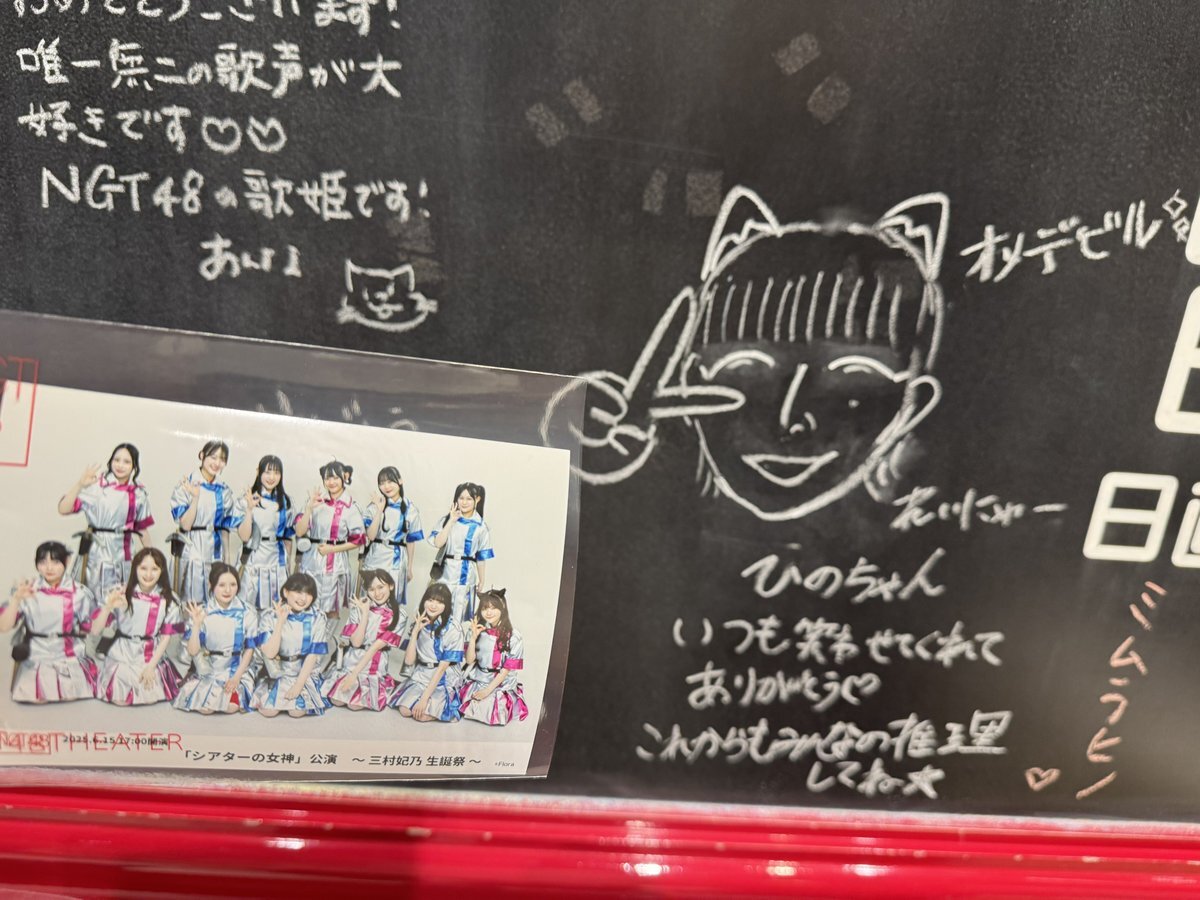 おめでとうございます!
唯一無二の歌声が大
好きです♡♡
NGT48の歌姫です!
オリデビル
れいにゃー
ひのちゃん
いつも笑わせてくれて
ありがとう♡
これからもみんなの推理
してね★
ミムラヒノ
2025.6.15 17:00開演
THEATER
「シアターの女神」公演 ～三村妃乃 生誕祭～
©Flora
日